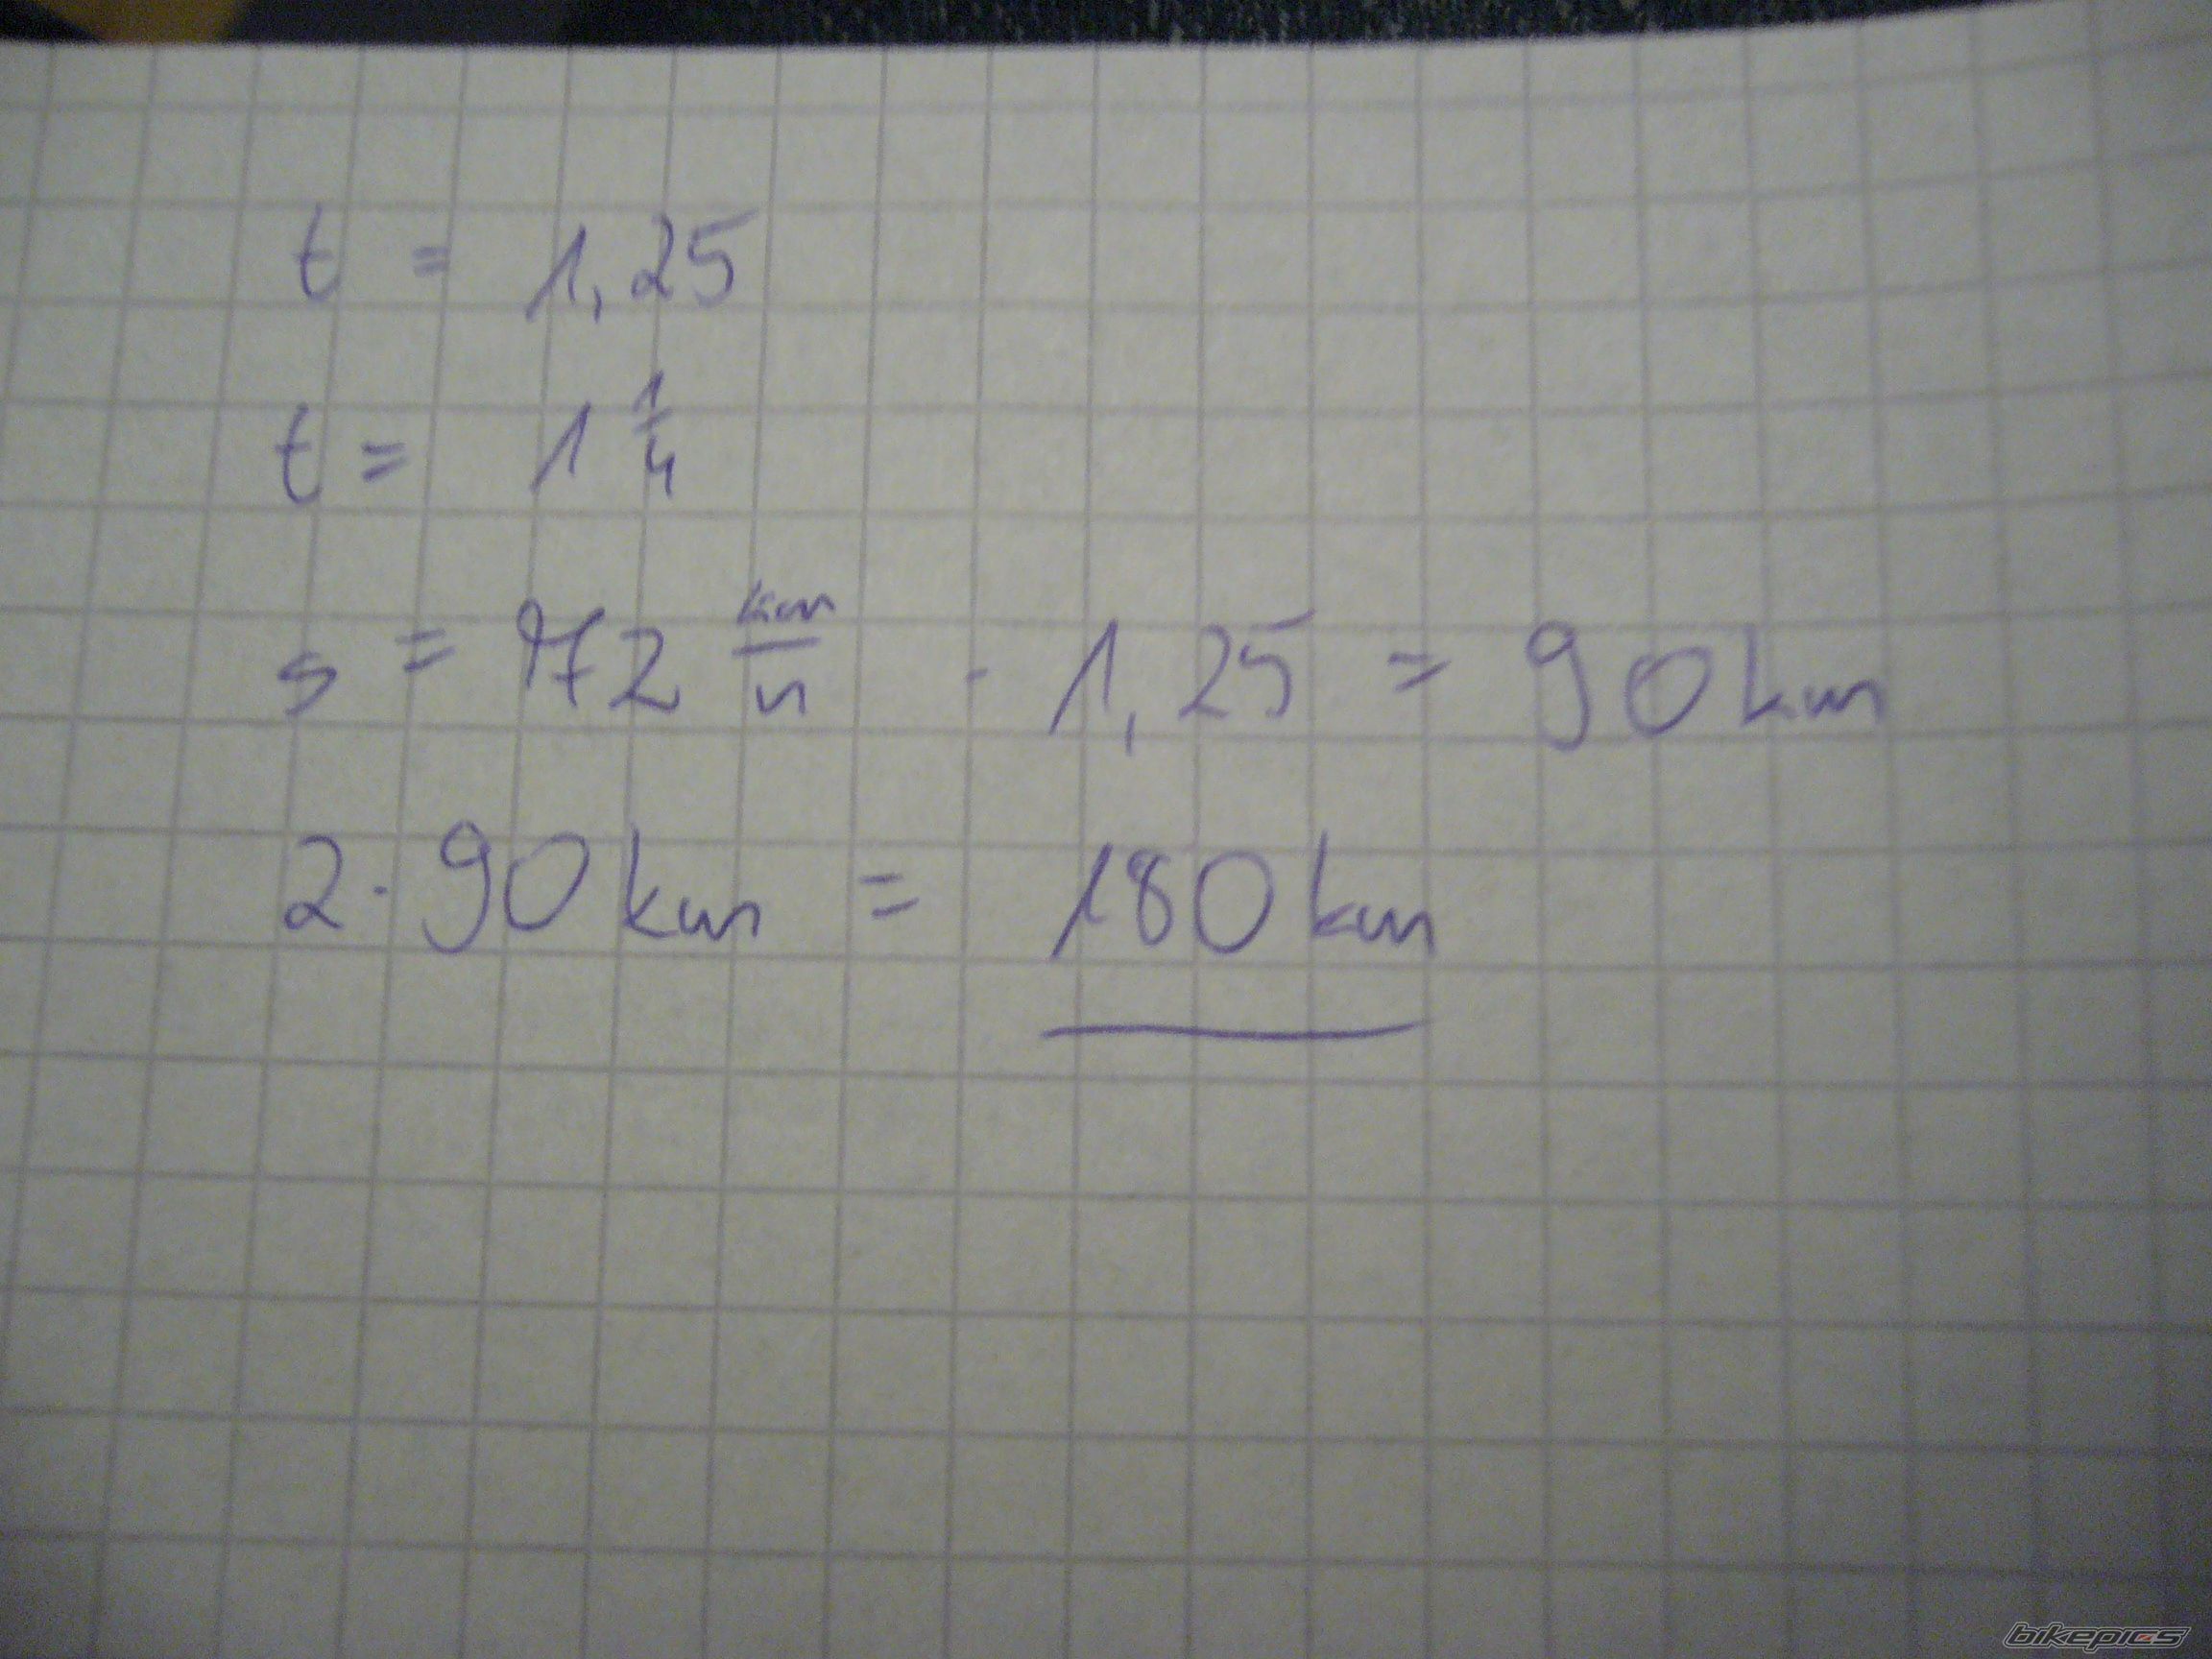 t = 1,25
t = 1 1/4
s = 72 km/h · 1,25 = 90 km
2 · 90 km = 180 km
bikepics